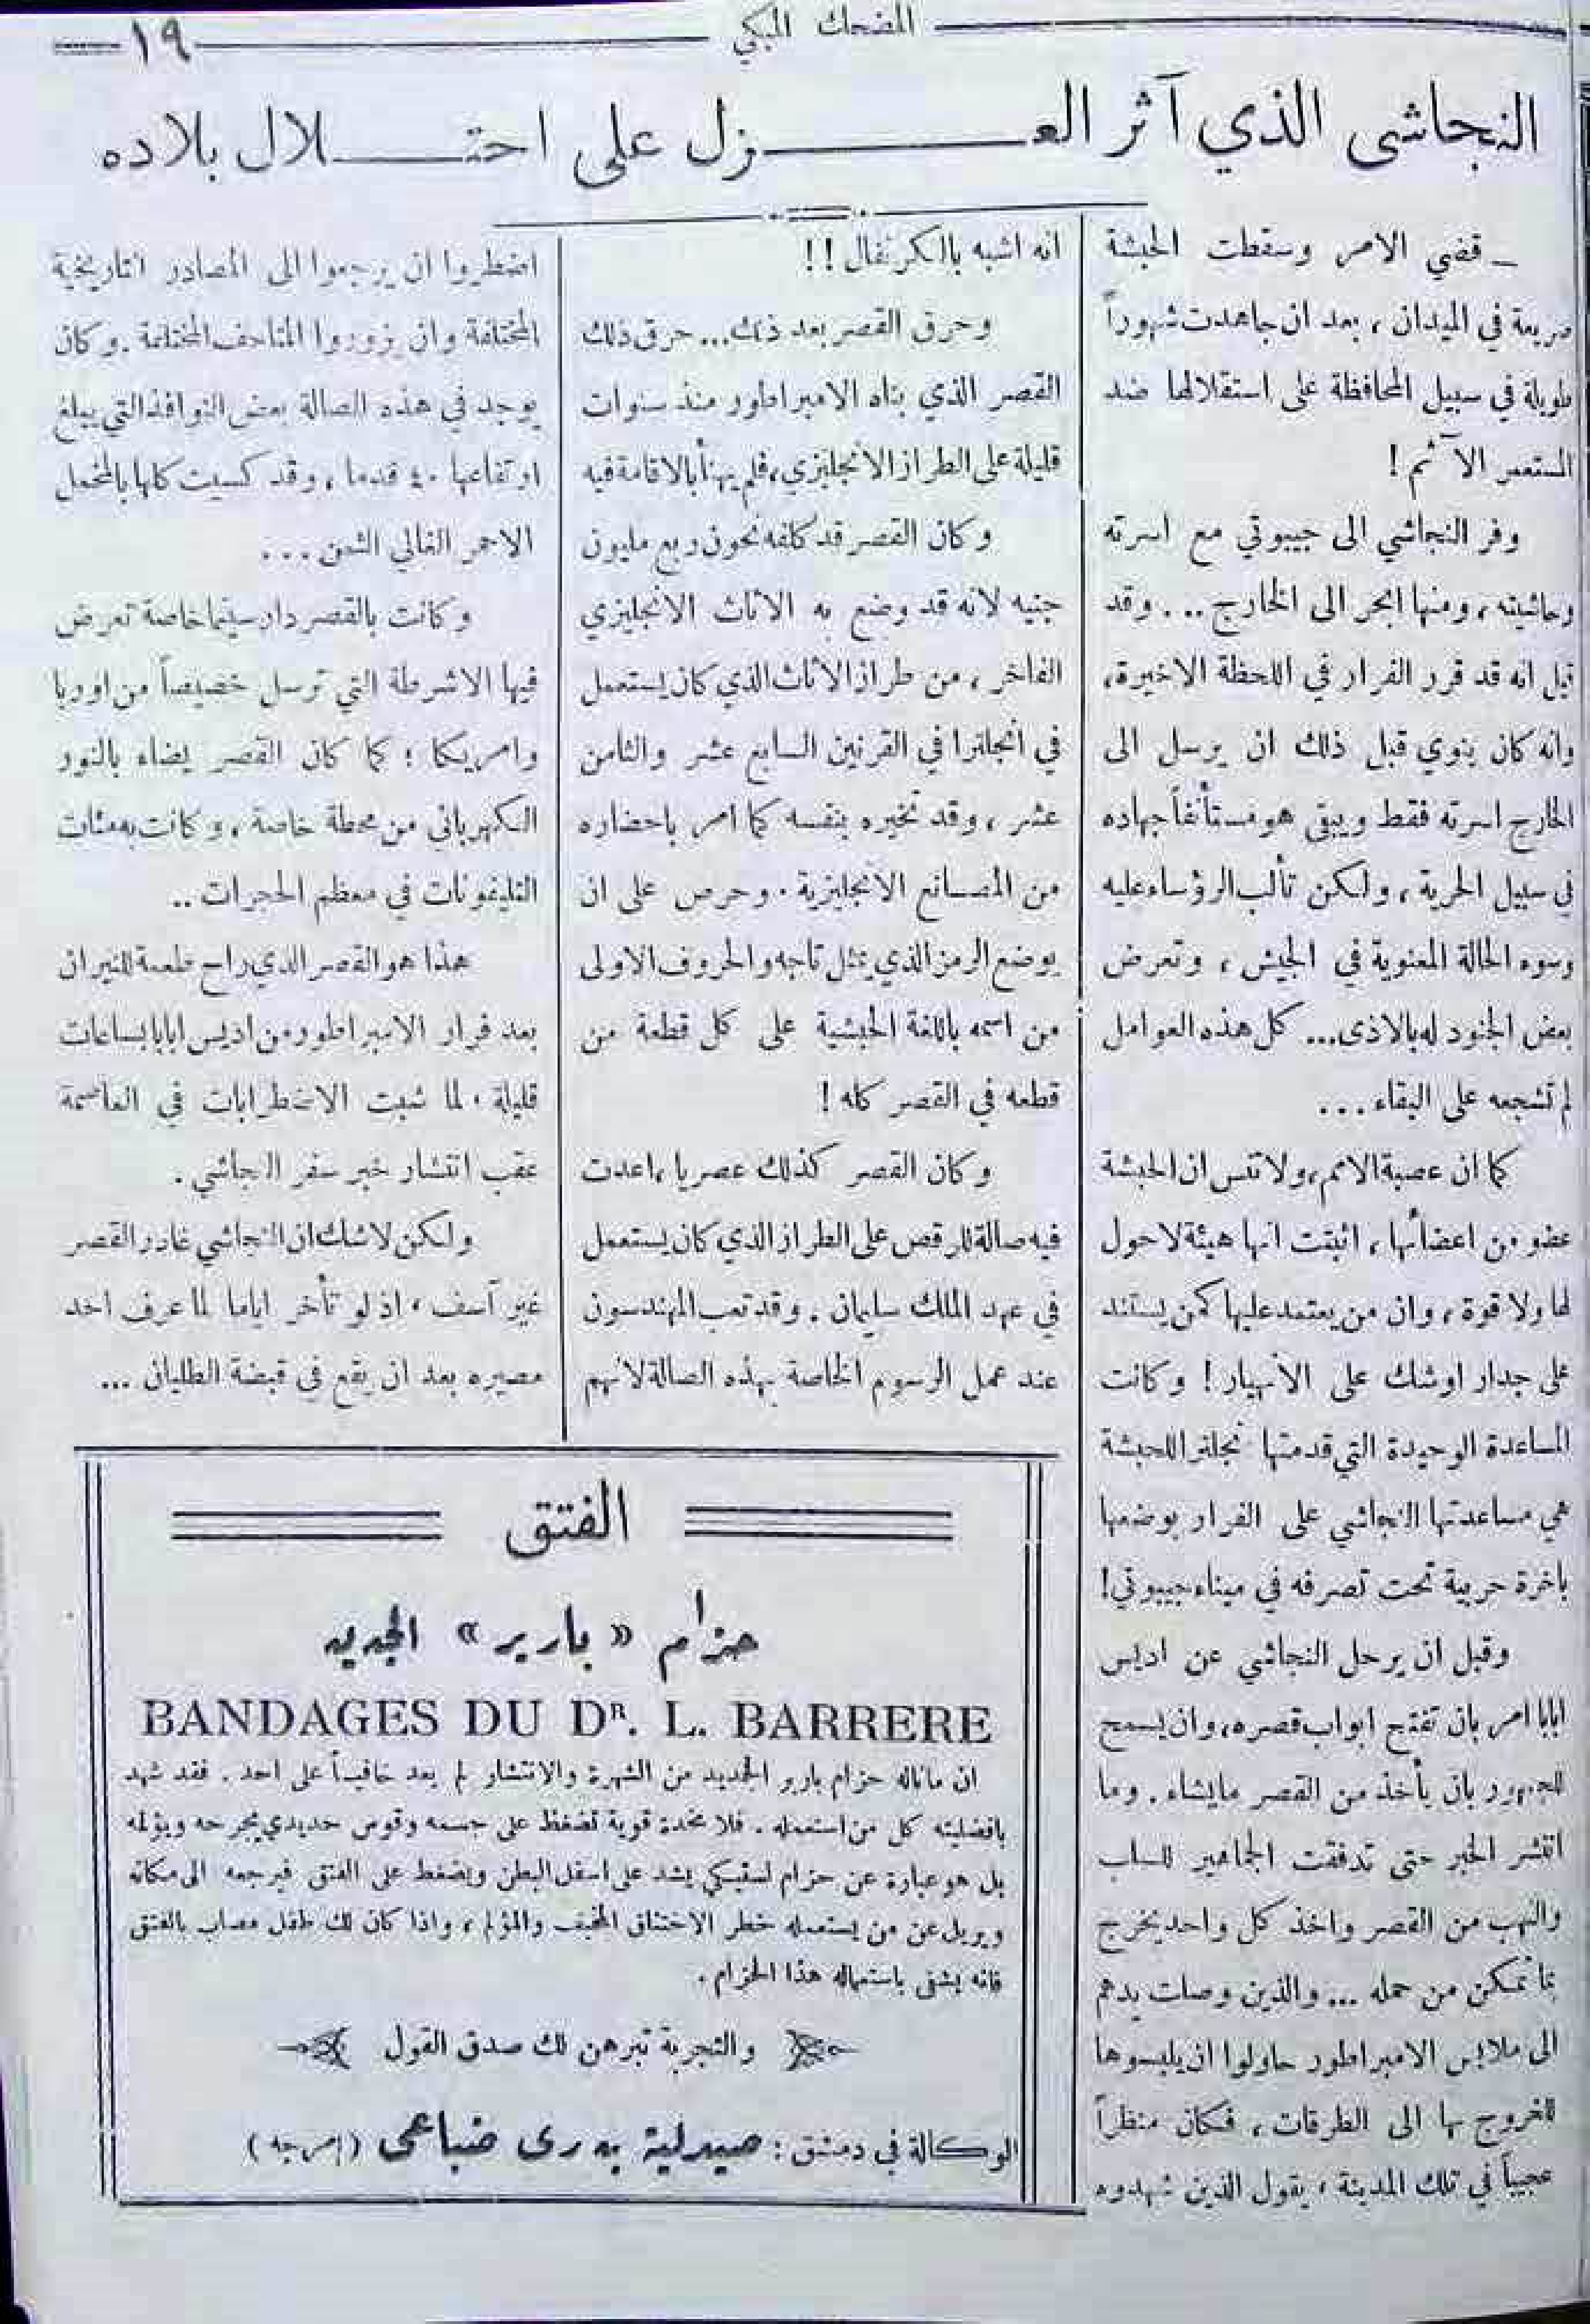 المضحك المبكي
١٩
النجاشى الذي آثر العزل على احتلال بلاده
ـ قضي الامر وسقطت الحبشة
صريعة في الميدان ، بعد ان جاهدت شهوراً
طويلة في سبيل المحافظة على استقلالها ضد
المستعمر الآثم !
وفر النجاشي الى جيبوتي مع اسرته
وحاشيته ، ومنها ابحر الى الخارج ... وقد
قيل انه قد قرر الفرار في اللحظة الاخيرة،
وانه كان ينوي قبل ذلك ان يرسل الى
الخارج اسرته فقط ويبقى هو مستأنفاً جهاده
في سبيل الحرية ، ولكن تألب الرؤساء عليه
وسوء الحالة المعنوية في الجيش ، وتعرض
بعض الجنود له بالاذى... كل هذه العوامل
لم تشجعه على البقاء ...
كما ان عصبة الامم، ولا تنس ان الحبشة
عضو من اعضائها ، اثبتت انها هيئة لا حول
لها ولا قوة ، وان من يعتمد عليها كمن يستند
على جدار اوشك على الانهيار ! وكانت
المساعدة الوحيدة التي قدمتها نجلترا للحبشة
هي مساعدتها النجاشي على الفرار بوضعها
باخرة حربية تحت تصرفه في ميناء جيبوتي!
وقبل ان يرحل النجاشي عن اديس
ابابا امر بان تفتح ابواب قصره، وان يسمح
للجمهور بان يأخذ من القصر ما يشاء . وما
انتشر الخبر حتى تدفقت الجماهير للسلب
والنهب من القصر واخذ كل واحد يخرج
بما تمكن من حمله ... والذين وصلت يدهم
الى ملابس الامبراطور حاولوا ان يلبسوها
للخروج بها الى الطرقات ، فكان منظراً
عجيباً في تلك المدينة ، يقول الذين شهدوه
انه اشبه بالكرنفال !!
وحرق القصر بعد ذلك... حرق ذلك
القصر الذي بناه الامبراطور منذ سنوات
قليلة على الطراز الانجليزي، فلم يهنأ بالاقامة فيه
وكان القصر قد كلفه نحو ن ربع مليون
جنيه لانه قد وضع به الاثاث الانجليزي
الفاخر ، من طراز الأثاث الذي كان يستعمل
في انجلترا في القرنين السابع عشر والثامن
عشر ، وقد تخيره بنفسه كما امر باحضاره
من المصانع الانجليزية . وحرص على ان
يوضع الرمز الذي يمثل تاجه والحروف الاولى
من اسمه باللغة الحبشية على كل قطعة من
قطعه في القصر كله !
وكان القصر كذلك عصريا ، اعدت
فيه صالة للرقص على الطراز الذي كان يستعمل
في عهد الملك سليمان . وقد تعب المهندسون
عند عمل الرسوم الخاصة بهذه الصالة لانهم
اضطروا ان يرجعوا الى المصادر التاريخية
المختلفة وان يزوروا المتاحف المختلفة . وكان
يوجد في هذه الصالة بعض النوافذ التي يبلغ
ارتفاعها ٤٠ قدما ، وقد كسيت كلها بالمخمل
الاحمر الغالي الثمن ...
وكانت بالقصر دار سينما خاصة تعرض
فيها الاشرطة التي ترسل خصيصاً من اوربا
وامريكا ؛ كما كان القصر يضاء بالنور
الكهربائي من محطة خاصة ، وكانت به مئات
التليفونات في معظم الحجرات ..
هذا هو القصر الذي راح طعمة للنيران
بعد فرار الامبراطور من اديس ابابا بساعات
قليلة ، لما شبت الاضطرابات في العاصمة
عقب انتشار خبر سفر النجاشي .
ولكن لاشك ان النجاشي غادر القصر
غير آسف ، اذ لو تأخر اياما لما عرف احد
مصيره بعد ان يقع في قبضة الطليان ...
الفتق
حزام « بارير » الجديد
BANDAGES DU Dᴿ. L. BARRERE
ان ماناله حزام بارير الجديد من الشهرة والانتشار لم يعد خافياً على احد . فقد شهد
بافضليته كل من استعمله . فلا مخدة قوية تضغط على جسمه وقوس حديدي يجرحه ويؤلمه
بل هو عبارة عن حزام لستيكي يشد على اسفل البطن ويضغط على الفتق فيرجعه الى مكانه
ويريل عن من يستعمله خطر الاختناق المخيف والمؤلم ، واذا كان لك طفل مصاب بالفتق
فانه يشفى باستعماله هذا الحزام .
والتجربة تبرهن لك صدق القول
الوكالة في دمشق : صيدلية بدرى ضباعى (مرجه)